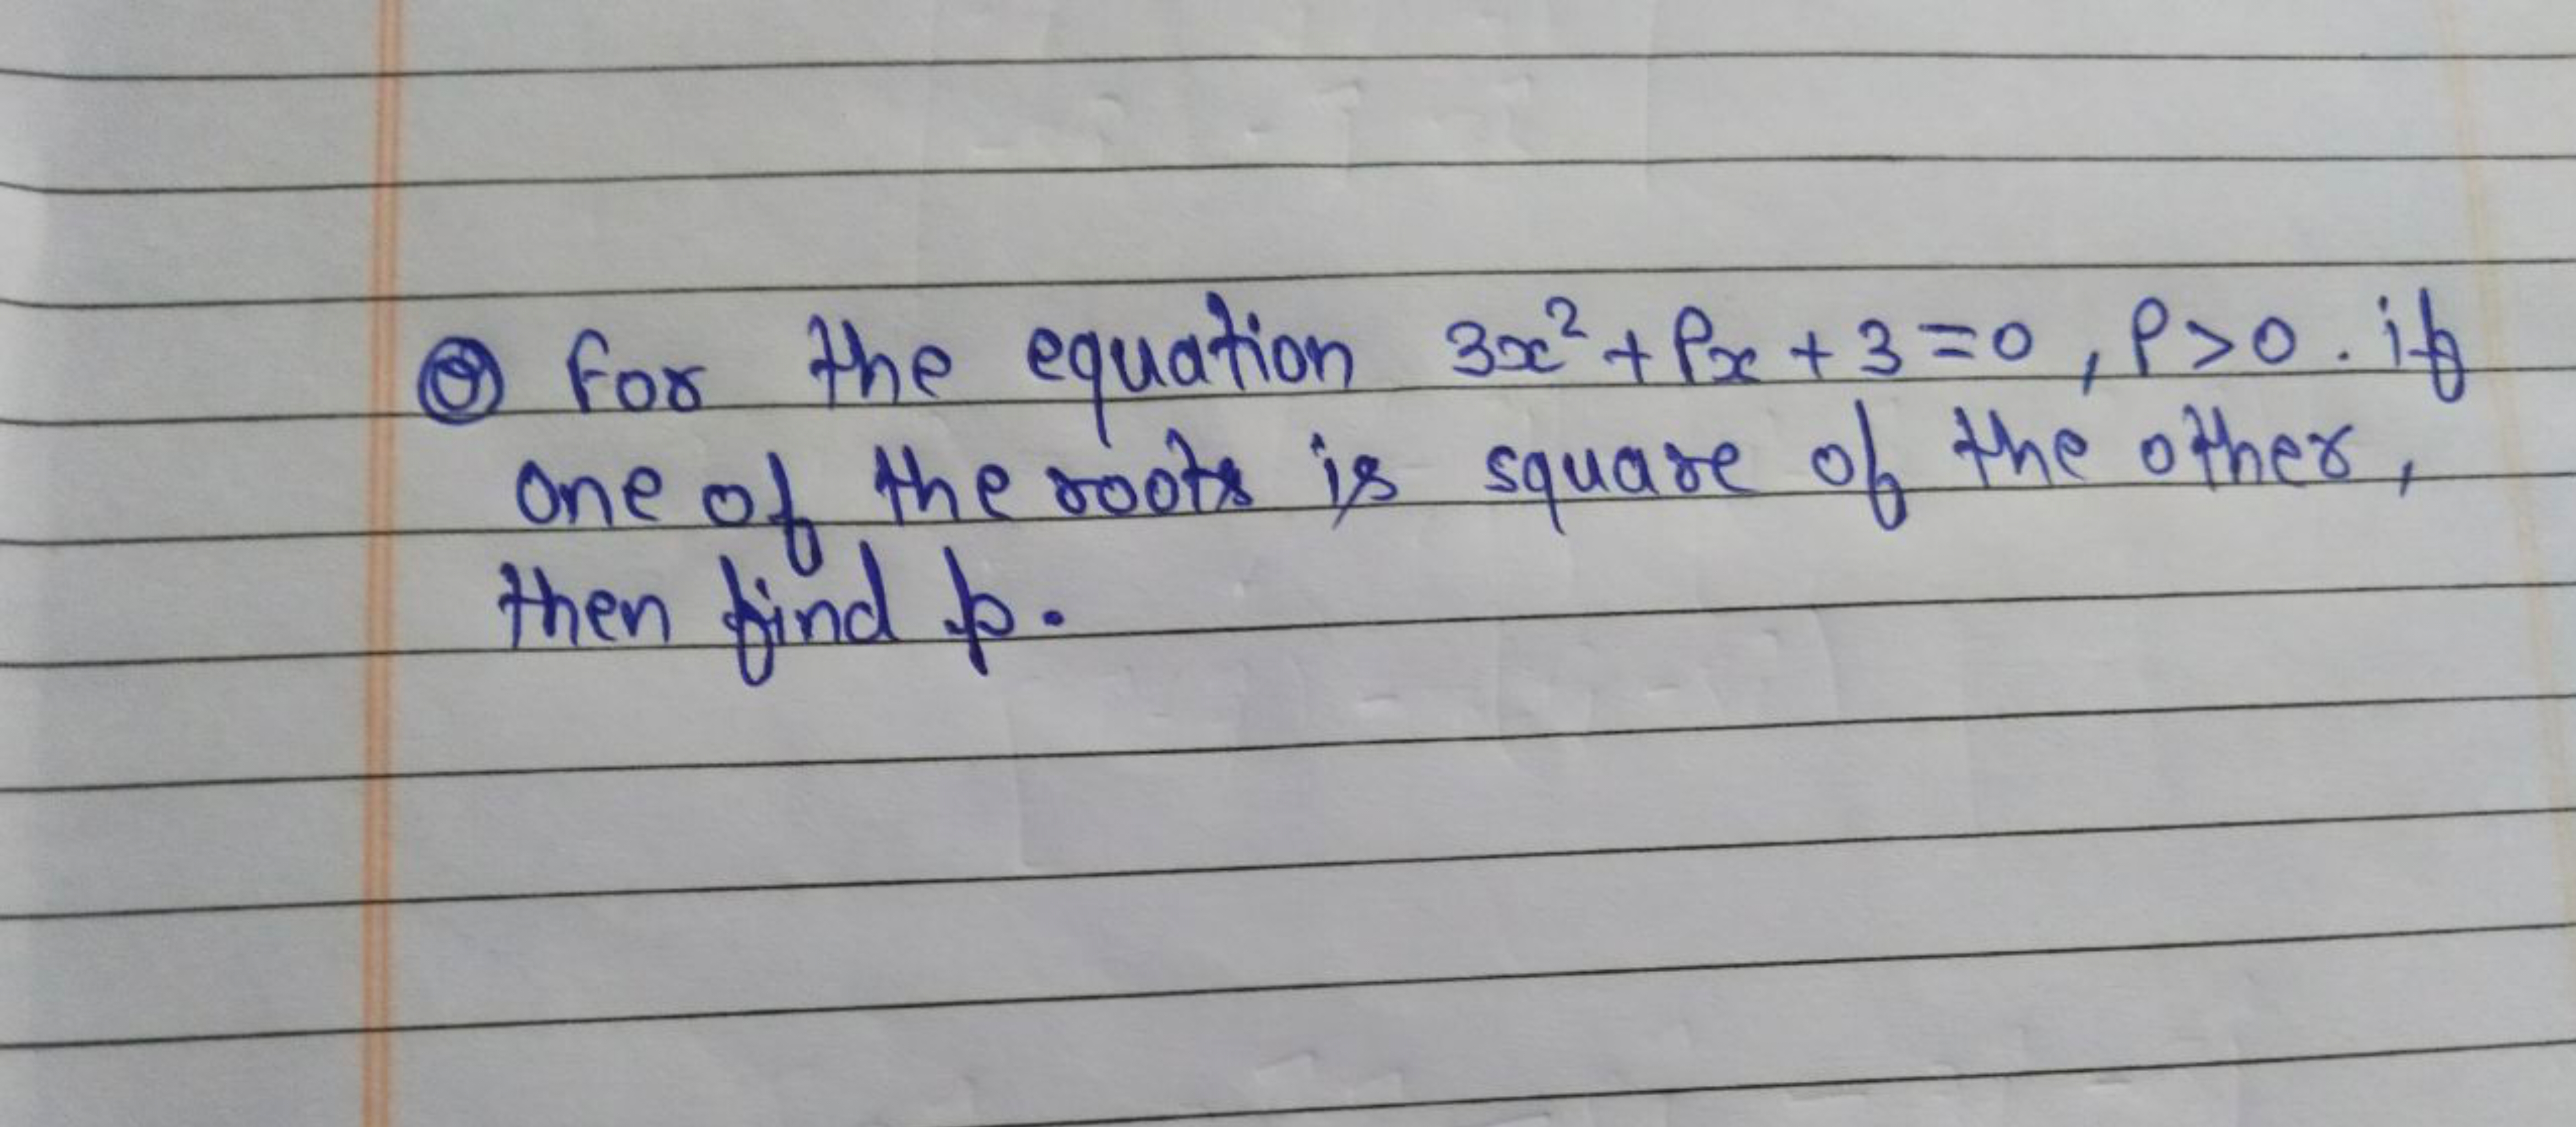 Q for the equation 3x² + Px + 3 = 0, P > 0. if
one of the roots is square of the other,
then find p.